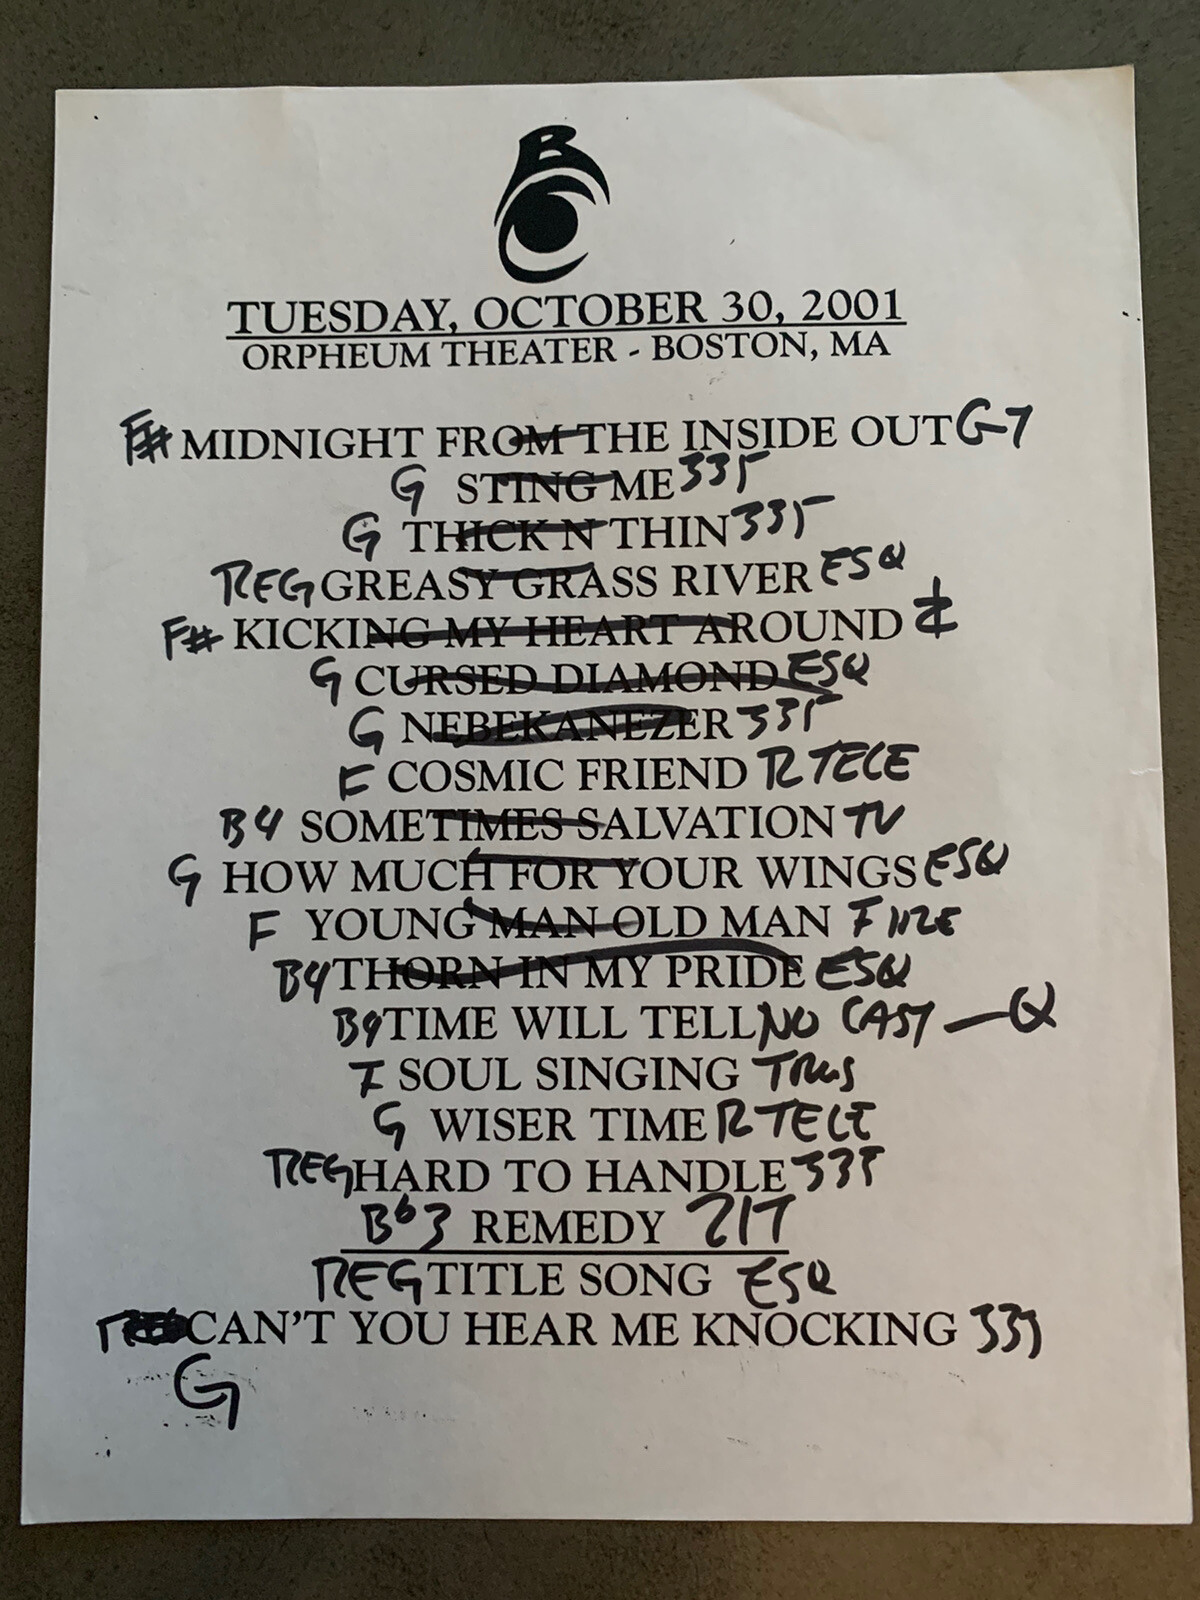 BC
TUESDAY, OCTOBER 30, 2001
ORPHEUM THEATER - BOSTON, MA
F# MIDNIGHT FROM THE INSIDE OUT G-7
G STING ME 335
G THICK N THIN 335
REG GREASY GRASS RIVER ESQ
F# KICKING MY HEART AROUND
G CURSED DIAMOND ESQ
G NEBEKANEZER 335
F COSMIC FRIEND R TELE
B4 SOMETIMES SALVATION TV
G HOW MUCH FOR YOUR WINGS ESQ
F YOUNG MAN OLD MAN FIRE
B4 THORN IN MY PRIDE ESQ
B4 TIME WILL TELL NO CAST — Q
F SOUL SINGING TRUS
G WISER TIME R TELE
REG HARD TO HANDLE 335
Bb3 REMEDY 217
REG TITLE SONG ESQ
CAN'T YOU HEAR ME KNOCKING 335
G